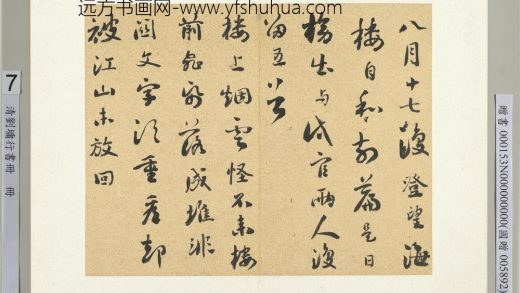 远方书画网- www.yfshuhua.com
八月十七復澄望海
樓自和前篇是日
榜出與試官兩人復
留五首
樓上烟雲怪不來樓
前飛紙落成堆非
關文字須重看却
被江山未放回
7
清劉墉行書冊 冊
贈書 000153N000000000(國贈 005892)